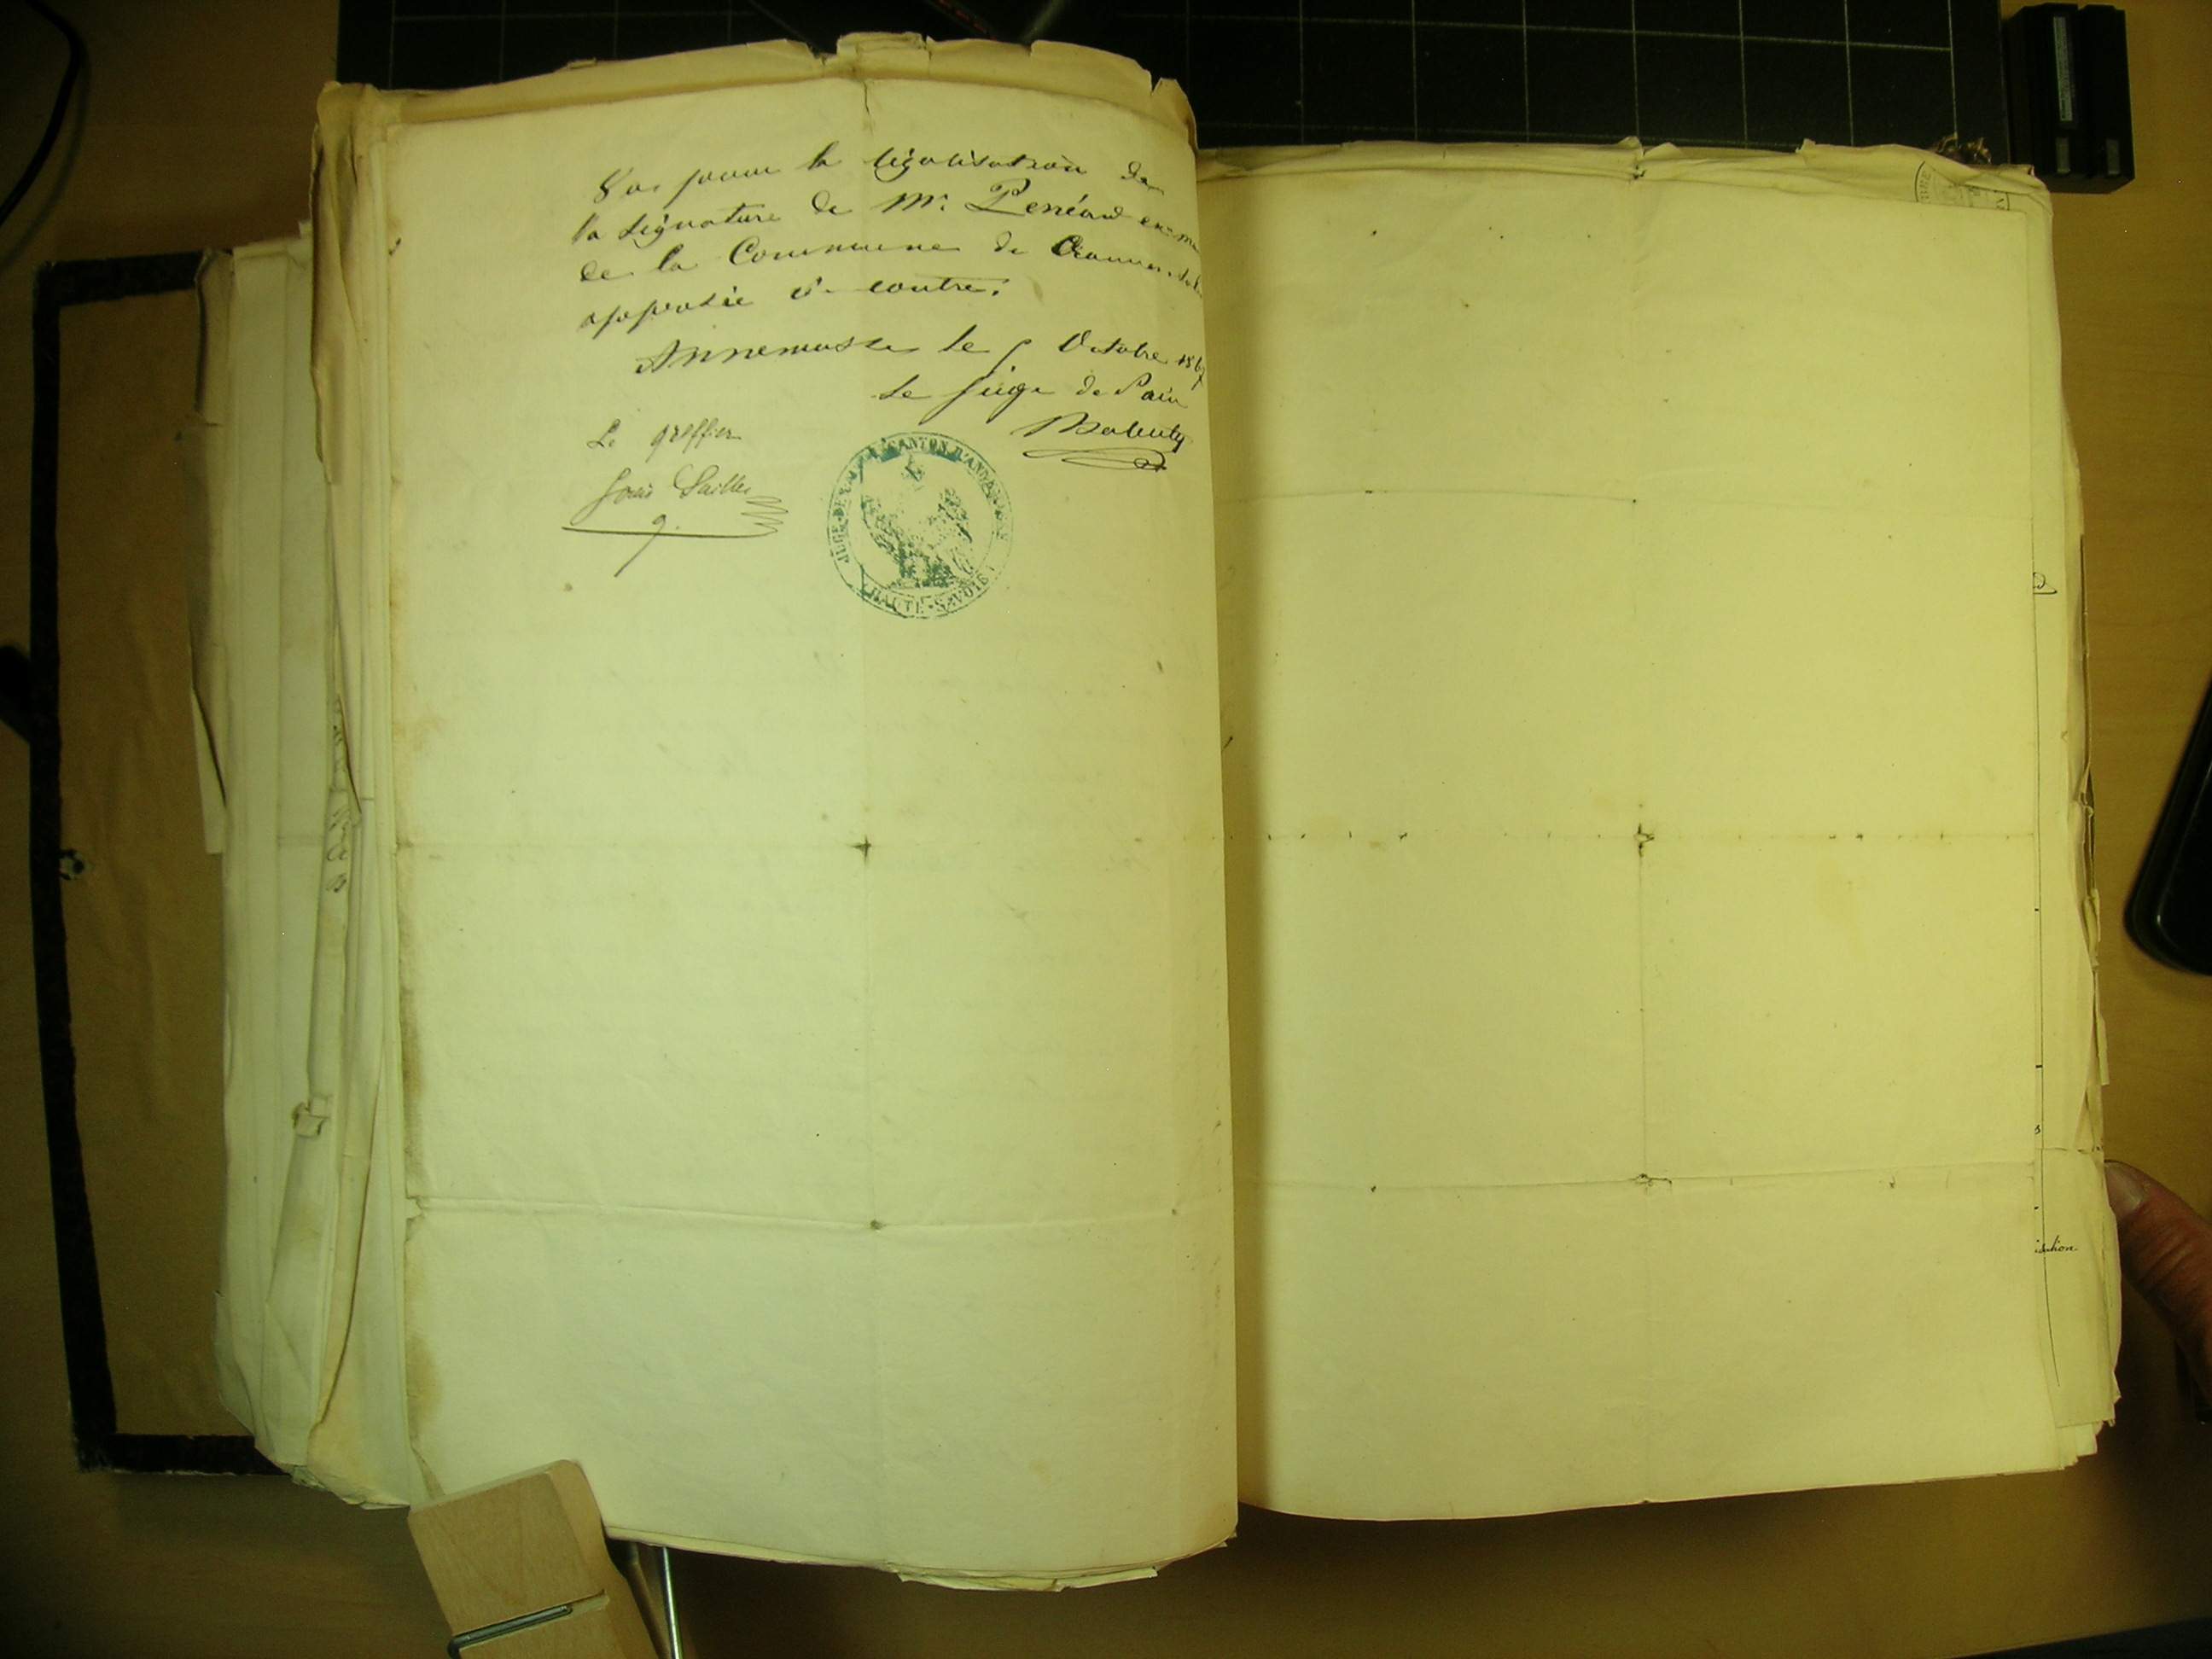 Vu pour la légalisation de
la signature de Mr. Penéard ex-m
de la Commune de
apposée ci-contre.
Annemasse le 5 Octobre 1867
Le Juge de Paix
Le greffier
CANTON D'ANNEMASSE
JUGE DE PAIX
HAUTE-SAVOIE
isation